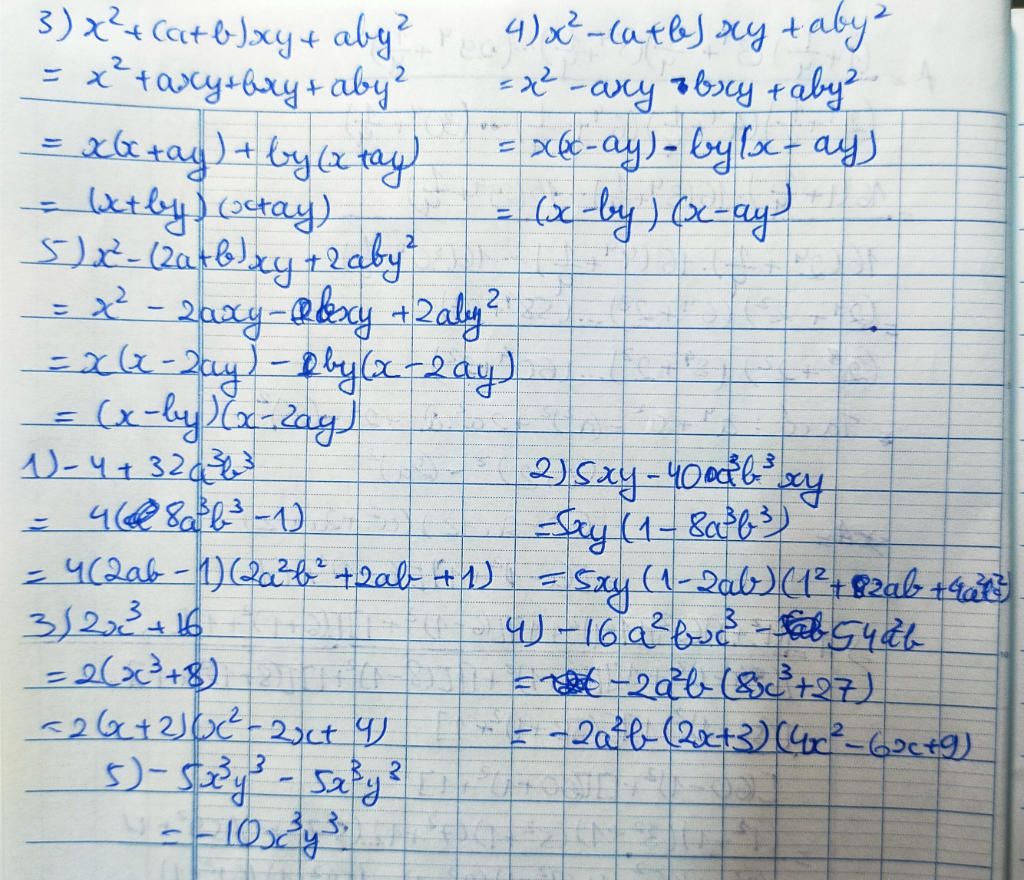 3) x² + (a+b)xy + aby²
= x² + axy + bxy + aby²
= x(x + ay) + by(x + ay)
= (x + by)(x + ay)
4) x² - (a+b)xy + aby²
= x² - axy - bxy + aby²
= x(x - ay) - by(x - ay)
= (x - by)(x - ay)
5) x² - (2a+b)xy + 2aby²
= x² - 2axy - bxy + 2aby²
= x(x - 2ay) - by(x - 2ay)
= (x - by)(x - 2ay)
1) - 4 + 32a³b³
= 4(8a³b³ - 1)
= 4(2ab - 1)(2a²b² + 2ab + 1)
2) 5xy - 40a³b³xy
= 5xy(1 - 8a³b³)
= 5xy(1 - 2ab)(1² + 2ab + 4a²b²)
3) 2x³ + 16
= 2(x³ + 8)
= 2(x + 2)(x² - 2x + 4)
4) - 16a²bx³ - 54a²b
= - 2a²b(8x³ + 27)
= - 2a²b(2x + 3)(4x² - 6x + 9)
5) - 5x³y³ - 5x³y³
= - 10x³y³